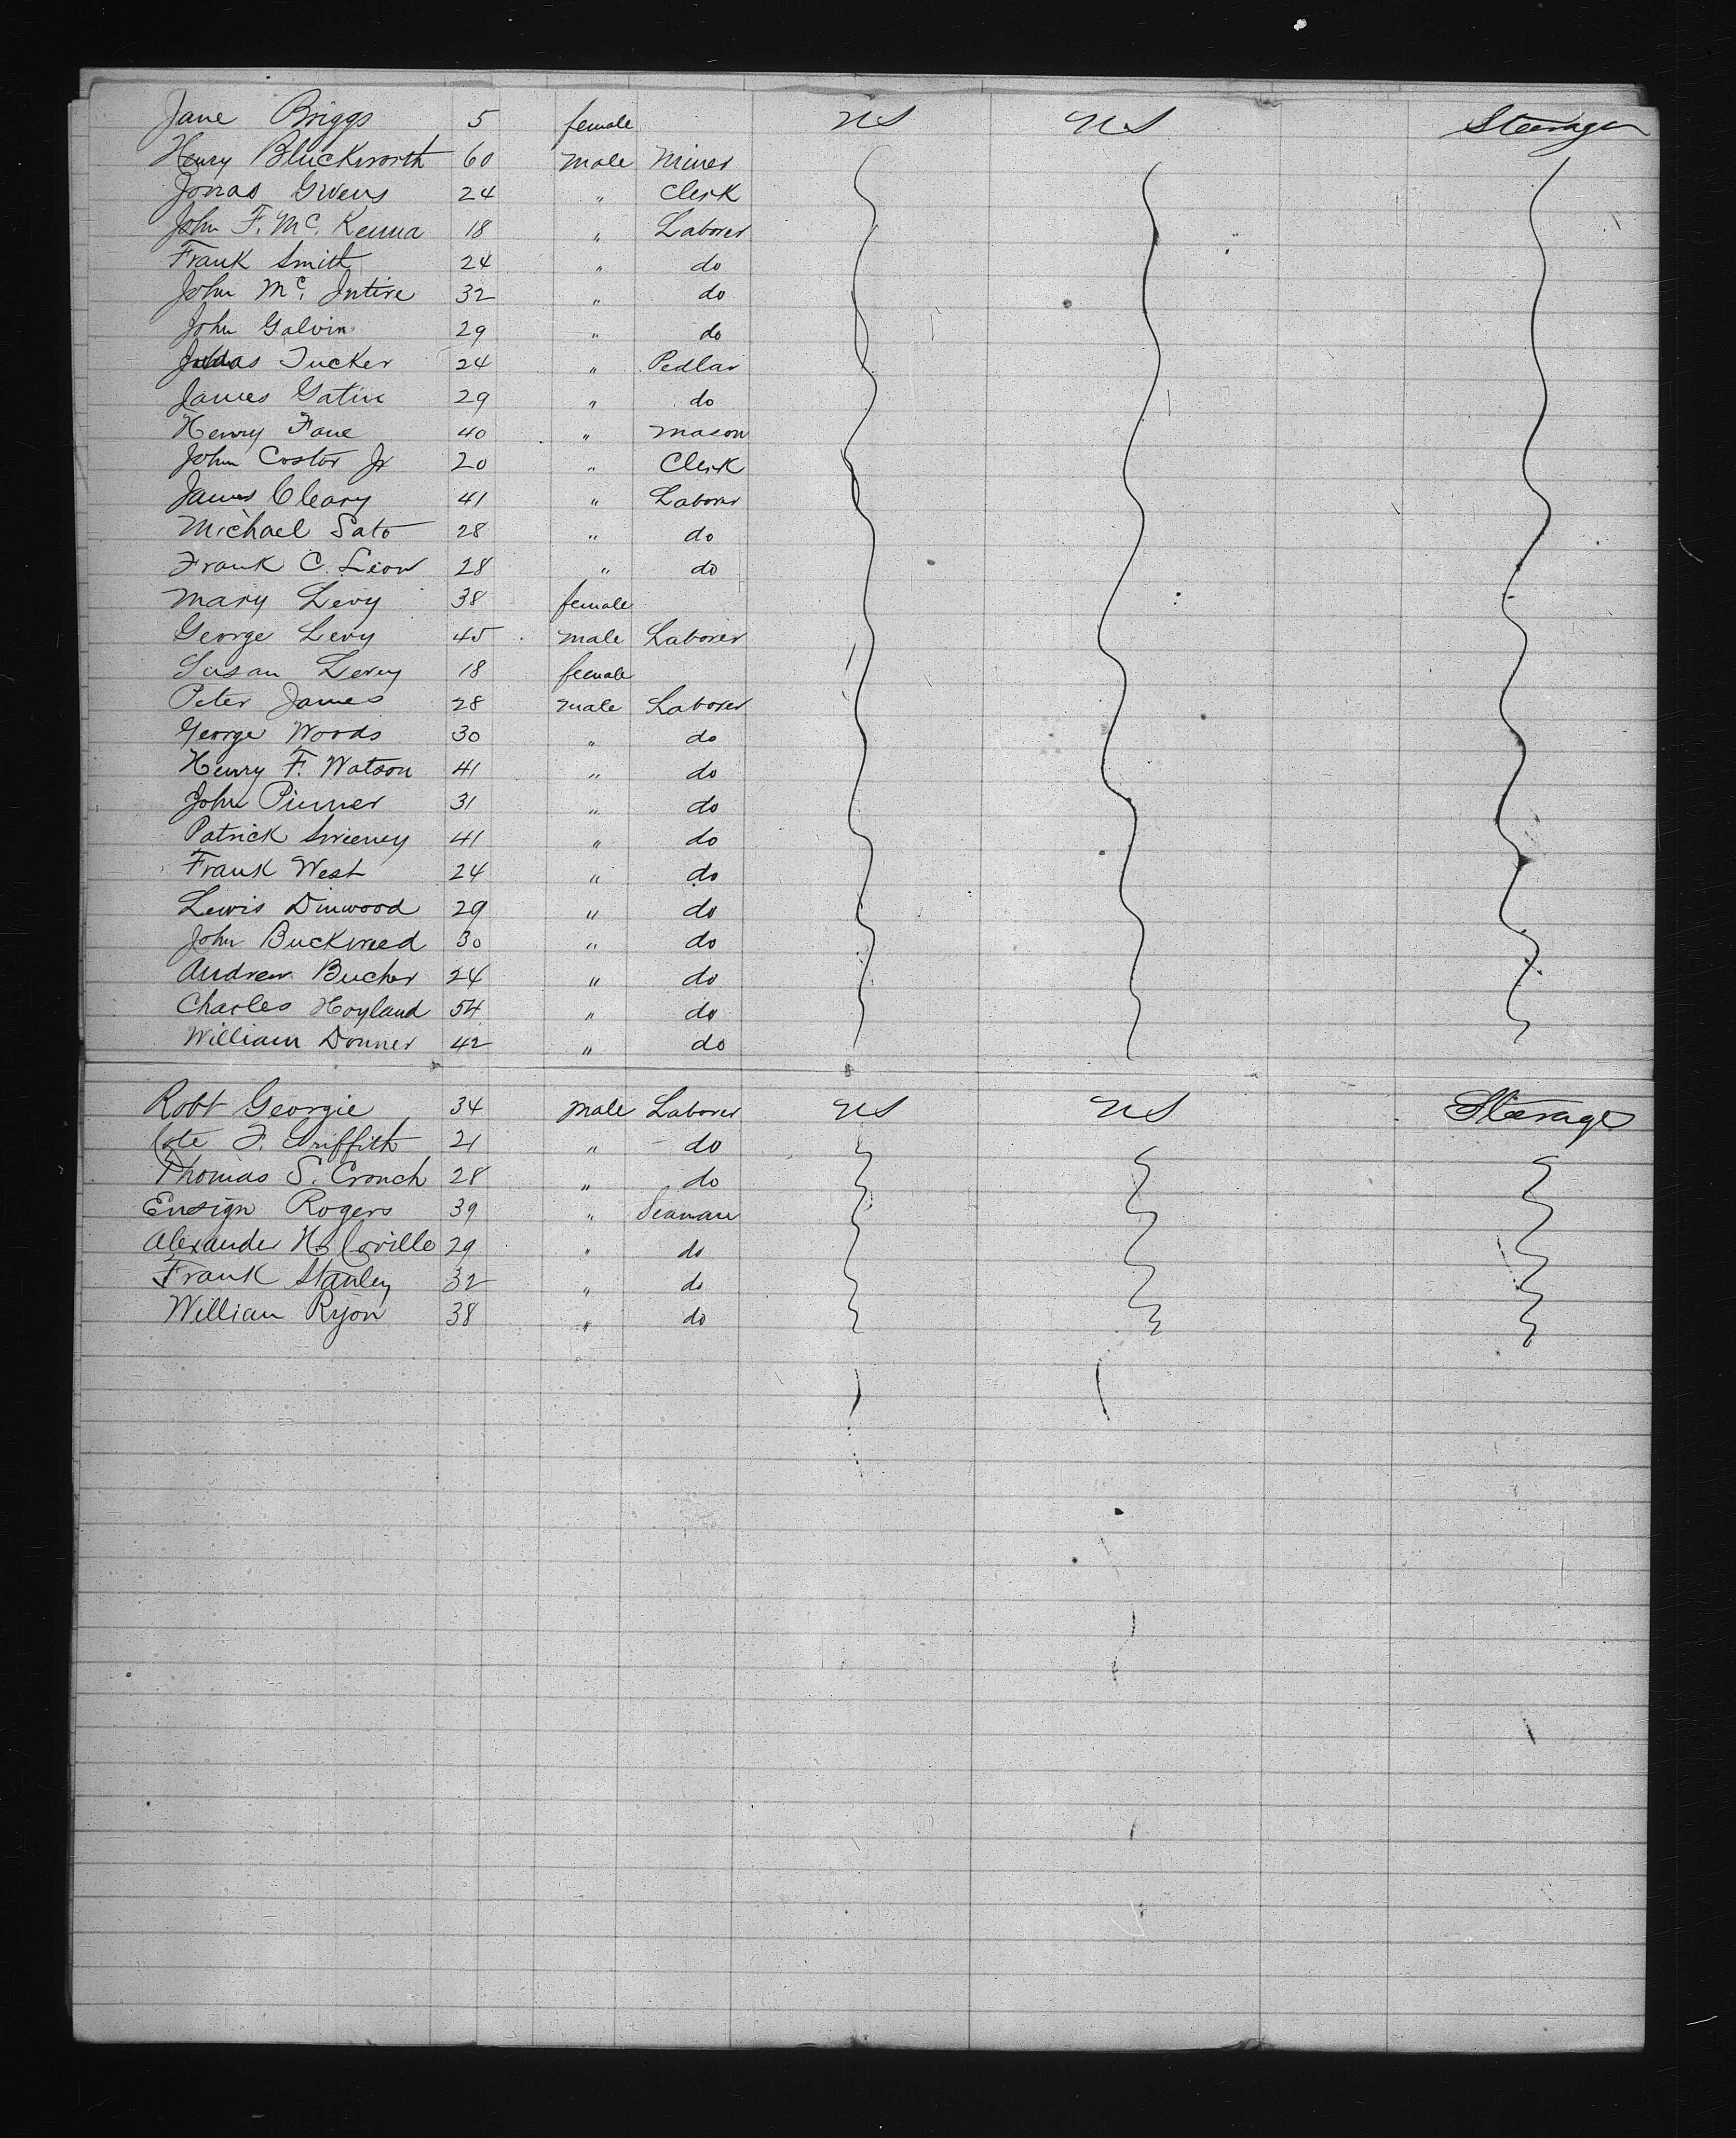 Jane Briggs 5 female US US Steerage
Henry Bluckworth 60 male Miner
Jonas Givens 24 " Clerk
John F. Mc. Kenna 18 " Laborer
Frank Smith 24 " do
John Mc. Intire 32 " do
John Galvin 29 " do
Tucker 24 " Pedlar
James Gatin 29 " do
Henry Fane 40 " Mason
John Costor Jr 20 " Clerk
James Cleary 41 " Laborer
Michael Sato 28 " do
Frank C. Lion 28 " do
Mary Levy 38 female
George Levy 45 male Laborer
Susan Levy 18 female
Peter James 28 male Laborer
George Woods 30 " do
Henry F. Watson 41 " do
John Pinner 31 " do
Patrick Sweeney 41 " do
Frank West 24 " do
Lewis Dinwood 29 " do
John Buckweed 30 " do
Andrew Bucher 24 " do
Charles Hoyland 54 " do
William Donner 42 " do
Robt Georgie 34 male Laborer US US Steerage
F. Griffith 21 " do
Thomas S. Crouch 28 " do
Ensign Rogers 39 " Seaman
Alexander H. Coville 29 " do
Frank Stanley 32 " do
William Ryon 38 " do